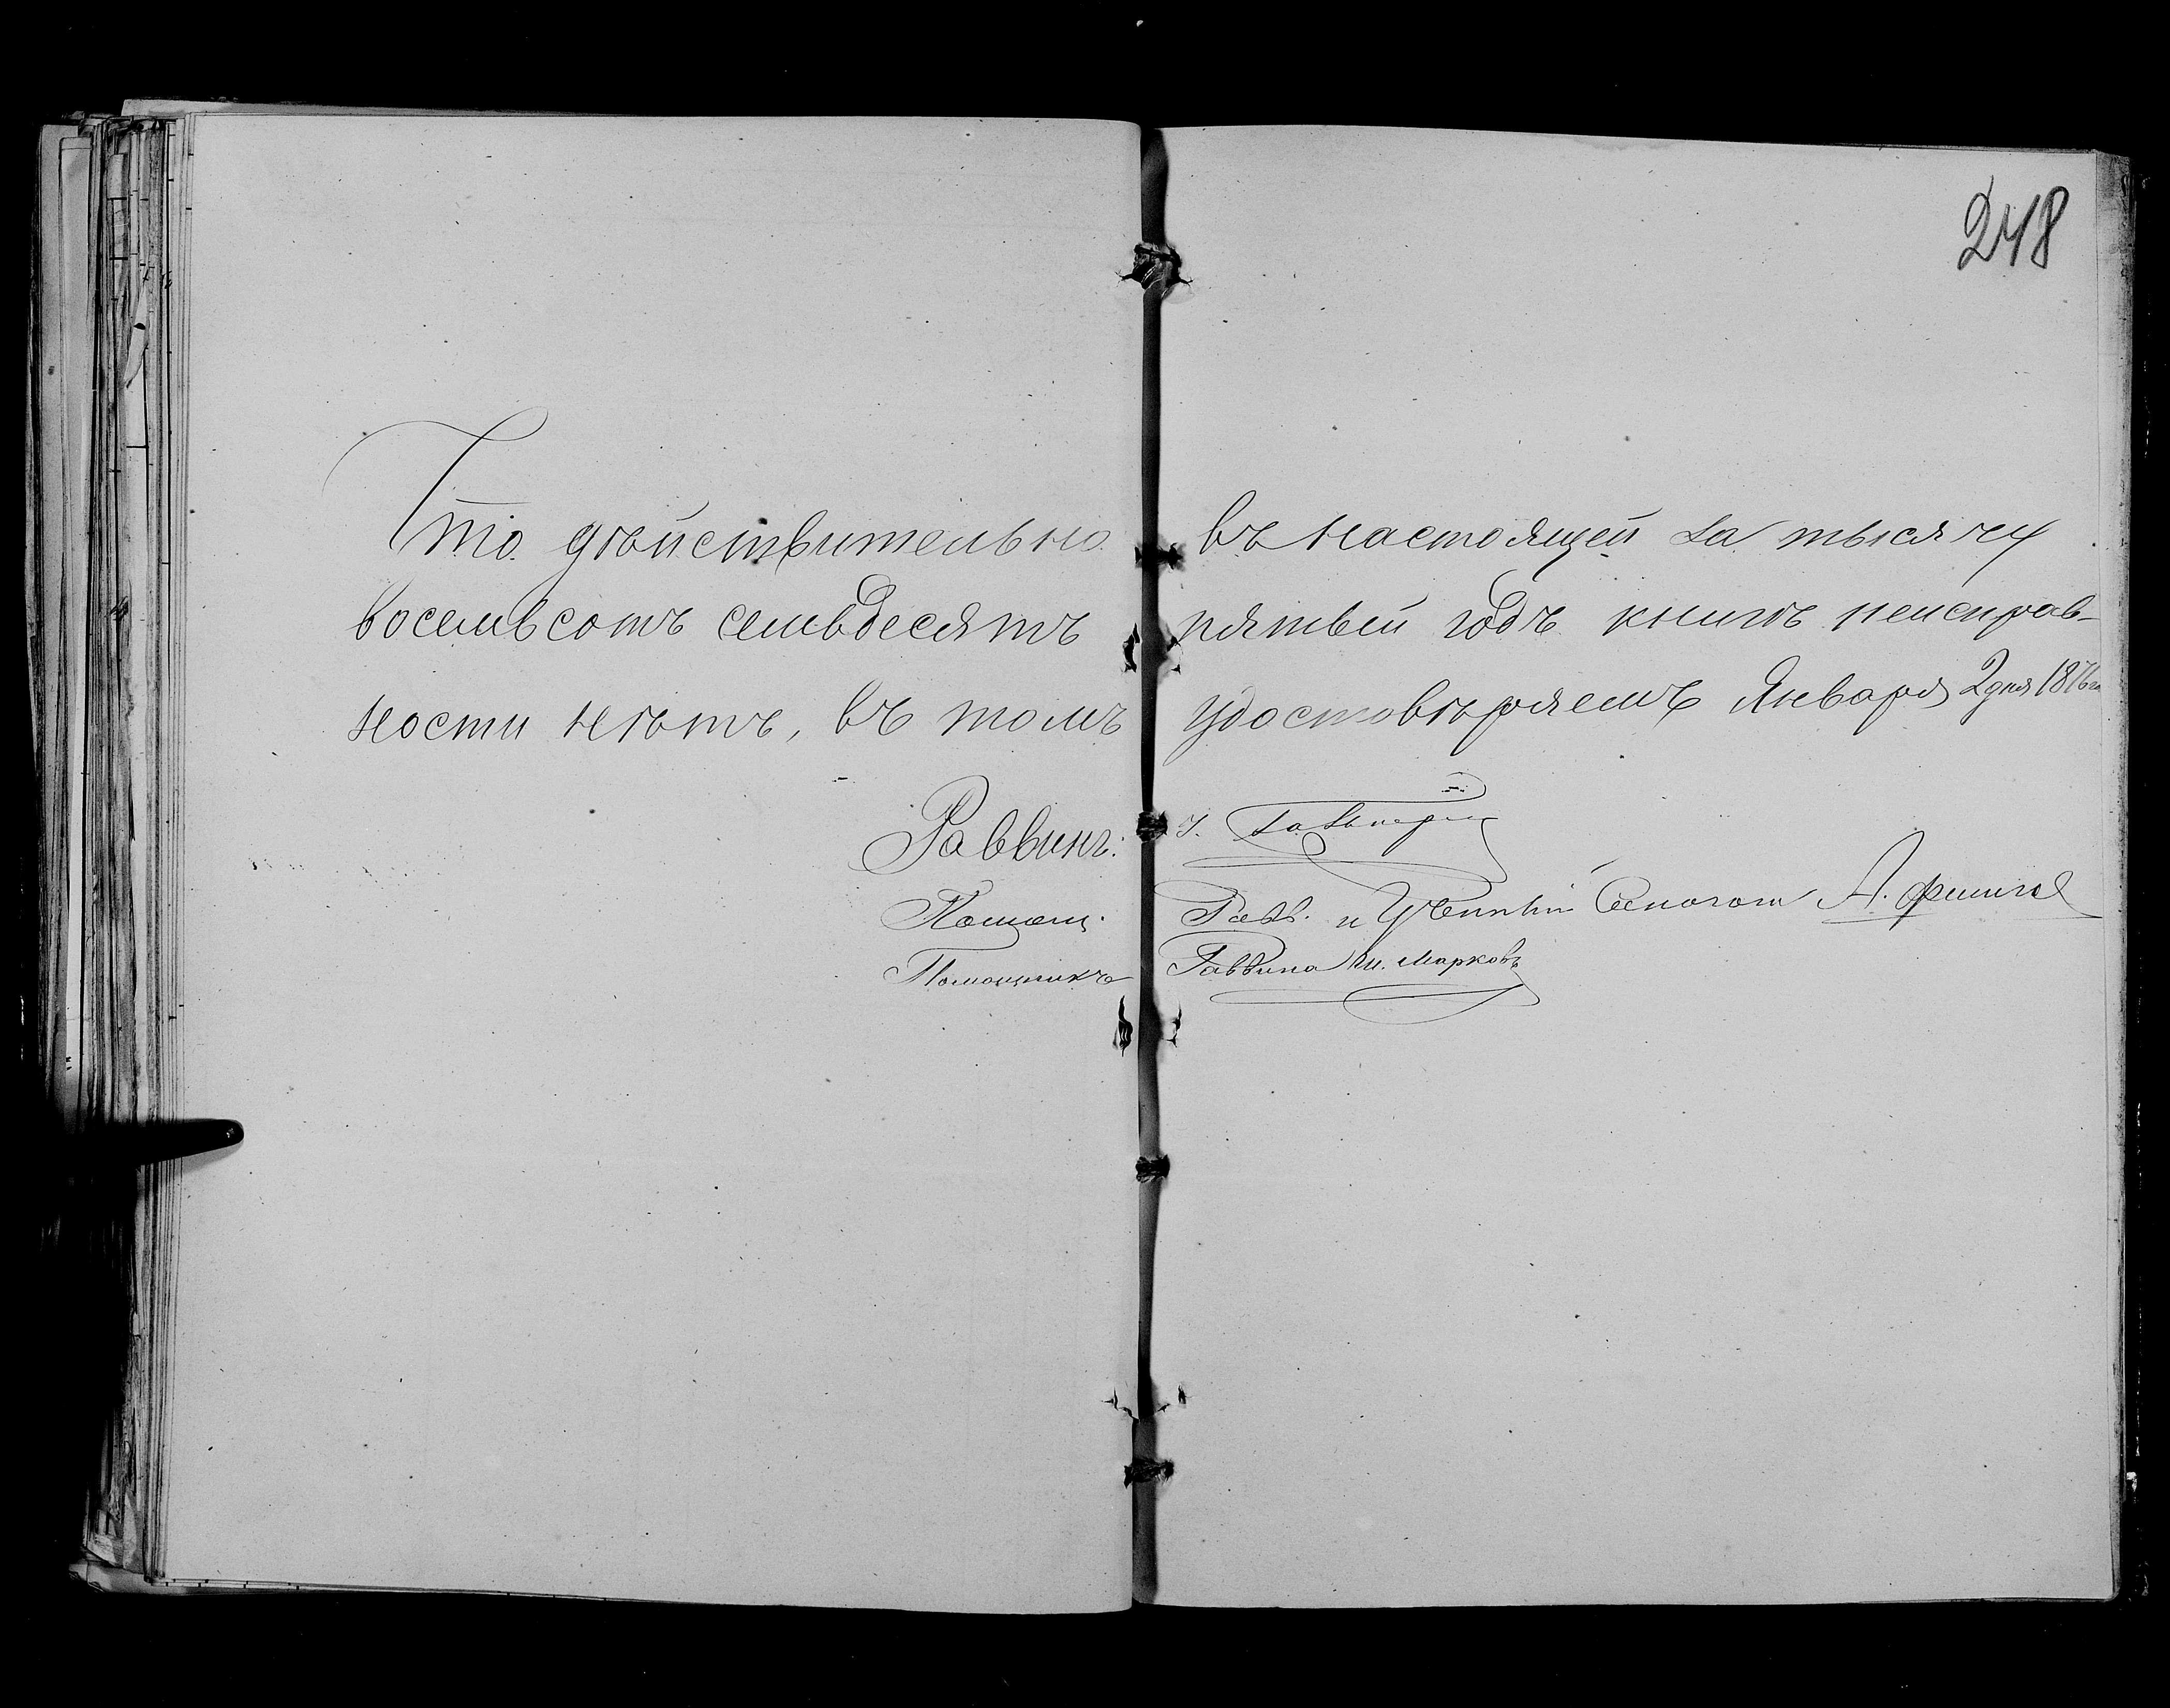 248
Что дѣйствительно въ настоящей за тысячу
восемьсотъ семьдесятъ пятый годъ книгѣ неисправ-
ности нѣтъ, въ томъ удостовѣряемъ Января 2 дня 1876 г.
Раввинъ:
Помощ. Равв. и Ученый
Помощникъ Раввина Ш. Марковъ